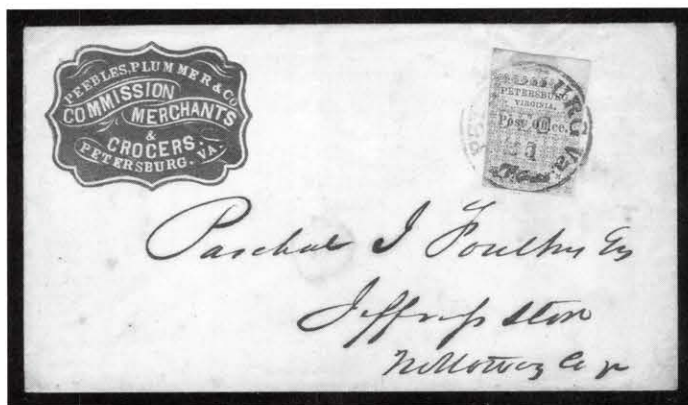 PEEBLES, PLUMMER & CO
COMMISSION
MERCHANTS
&
GROCERS.
PETERSBURG. VA.
URG Va.
PETERSBURG
VIRGINIA.
Post Office.
5
Paschal J Foulkes Esq
Jeffress Store
Nottoway Co Va